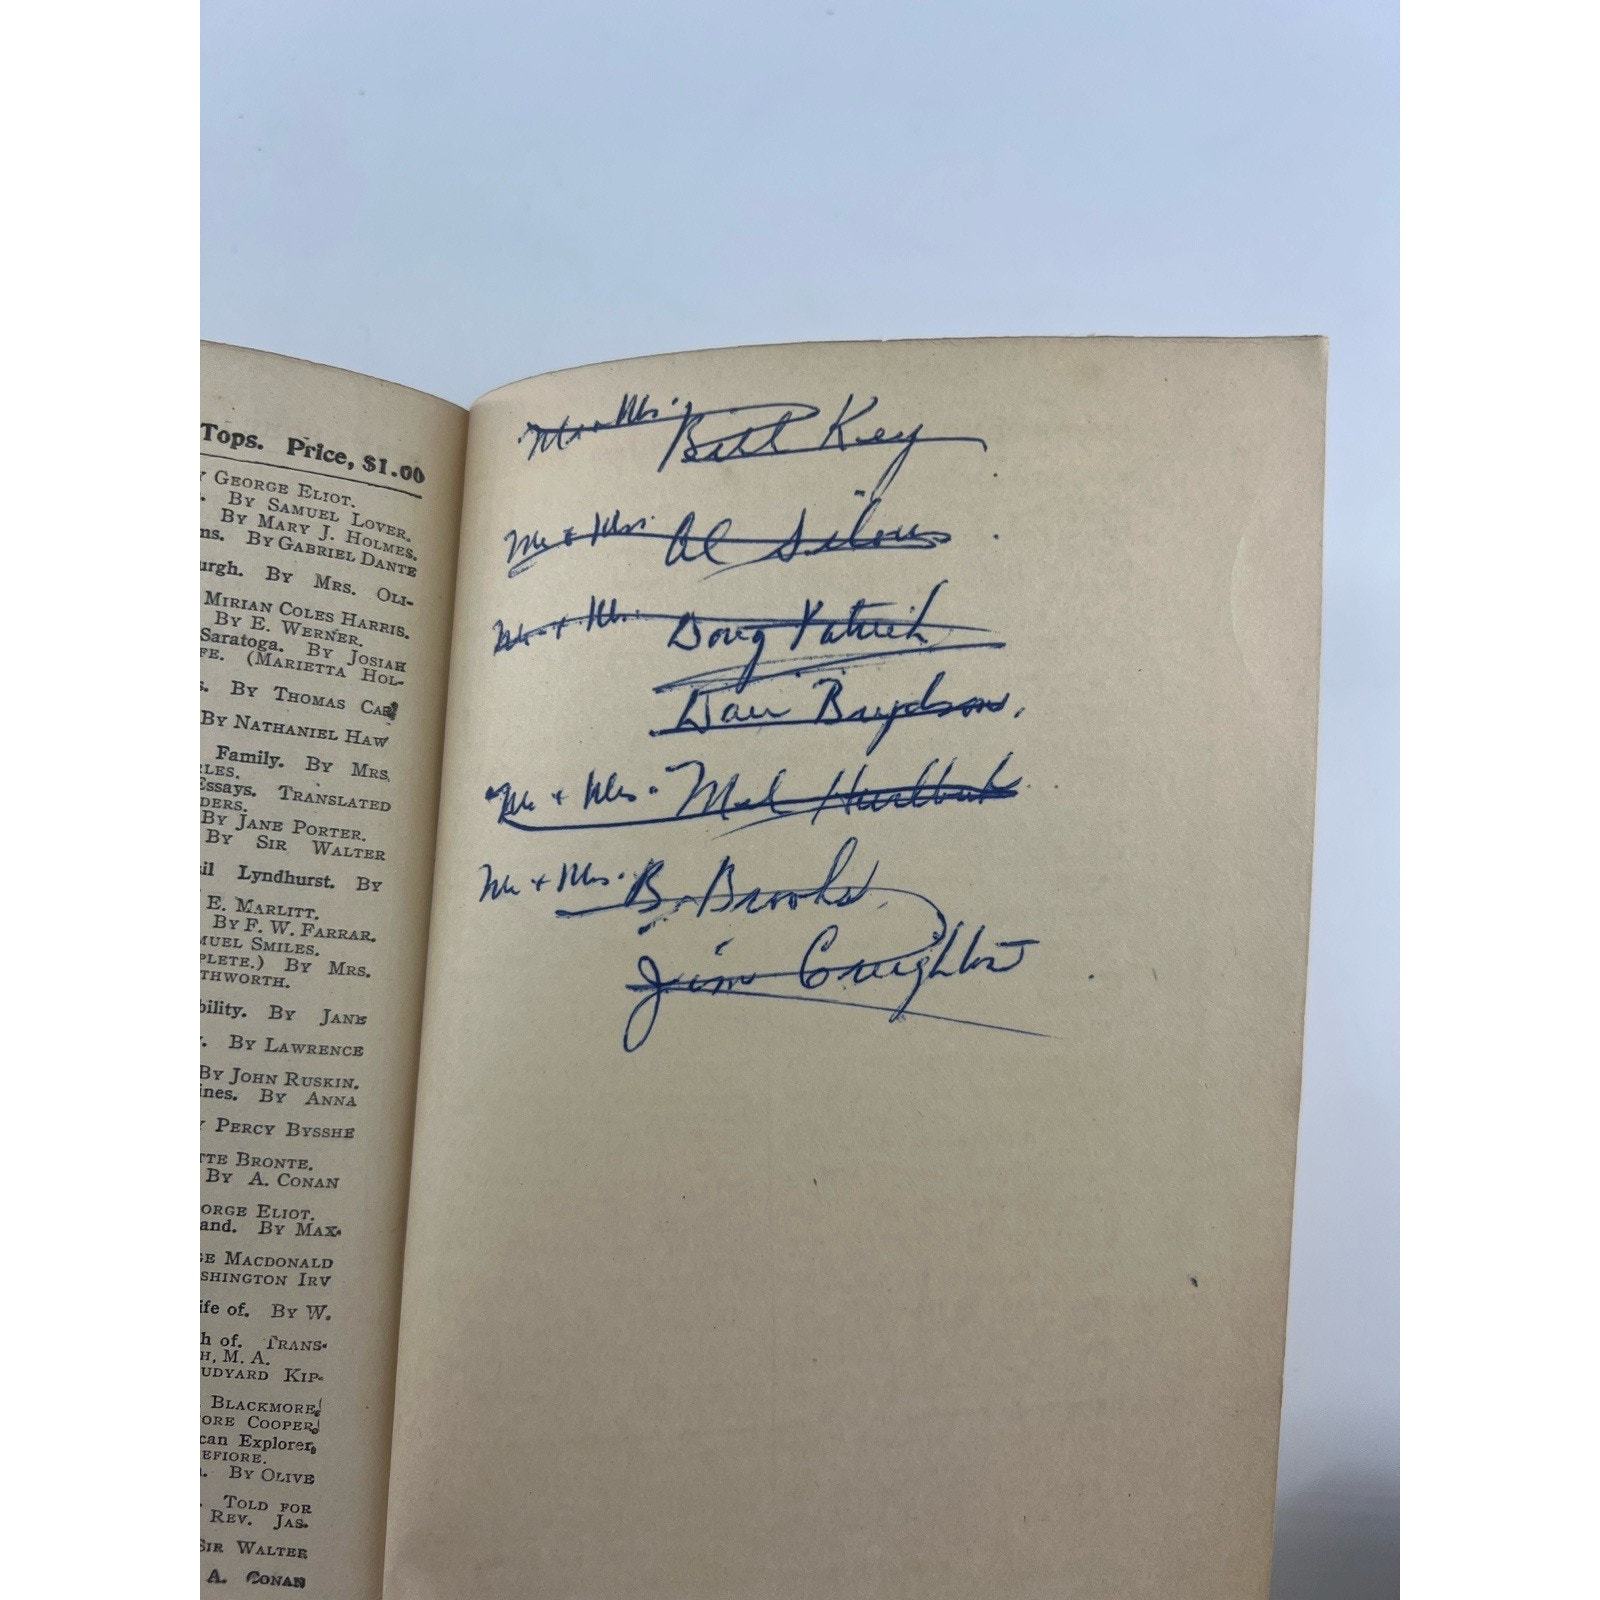 Tops. Price, $1.00
GEORGE ELIOT.
By SAMUEL LOVER.
By MARY J. HOLMES.
ns. By GABRIEL DANTE
urgh. By MRS. OLI-
MIRIAN COLES HARRIS.
By E. WERNER.
Saratoga. By JOSIAH
FE. (MARIETTA HOL-
s. By THOMAS CAR
By NATHANIEL HAW
Family. By MRS.
RLES.
Essays. TRANSLATED
DERS.
By JANE PORTER.
By SIR WALTER
sil Lyndhurst. By
E. MARLITT.
By F. W. FARRAR.
MUEL SMILES.
PLETE.) By MRS.
THWORTH.
bility. By JANE
By LAWRENCE
By JOHN RUSKIN.
ines. By ANNA
PERCY BYSSHE
TTE BRONTE.
By A. CONAN
ORGE ELIOT.
and. By MAX-
GE MACDONALD
SHINGTON IRV
ife of. By W.
h of. TRANS-
H, M. A.
UDYARD KIP-
BLACKMORE,
ORE COOPER,
can Explorer,
EFIORE.
By OLIVE
TOLD FOR
REV. JAS.
SIR WALTER
A. CONAN
Mr + Mrs. Bill Key
Mr + Mrs. Al
Mr + Mrs. Doug Patrick
Mr + Mrs. Mel Hurlbut
Mr + Mrs. B. Brooks.
Jim Creighton